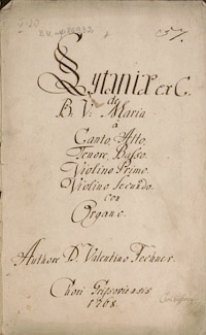 57.
Lytaniæ ex C.
de
B. V. Maria
a
Canto, Alto,
Tenore, Basso.
Violino Primo.
Violino Secundo.
con
Organo.
Authore D. Valentino Fechner.
Chori Grissoviensis
1768.